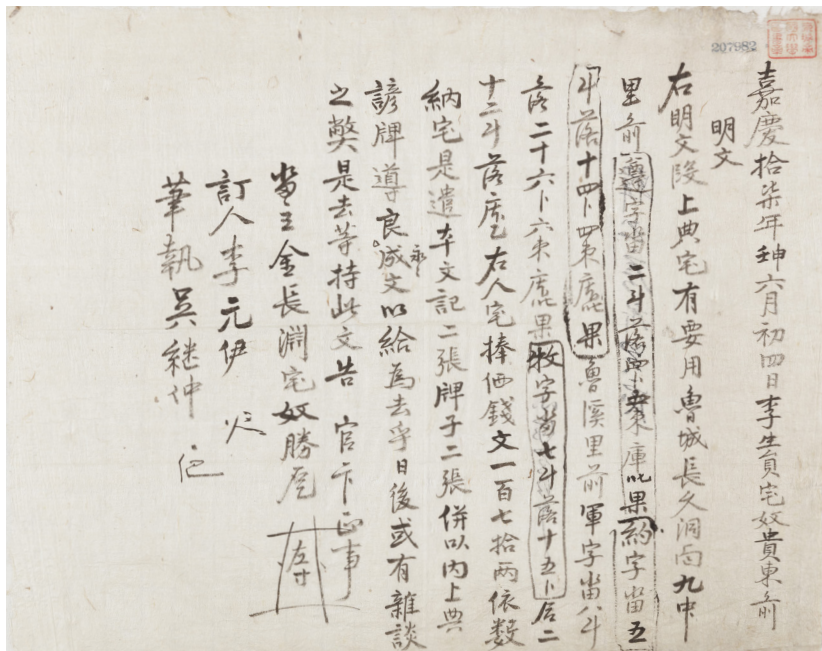 207982
嘉慶拾柒年壬申六月初四日李生員宅奴貴東前
明文
右明文段上典宅有要用魯城長久洞面九中
里前字畓二斗落庫果約字畓五
斗落十四卜四束庫果魯溪里前軍字畓八斗
落二十六卜六束庫果牧字畓七斗落十五卜合二
十二斗落庫乙右人宅捧価錢文一百七拾兩依數
納宅是遣本文記二張牌子二張併以內上典
諺牌導良永成文以給爲去乎日後或有雜談
之獘是去等持此文告 官卞正事
畓主金長淵宅奴勝 左寸
訂人李元伊
筆執吳継仲